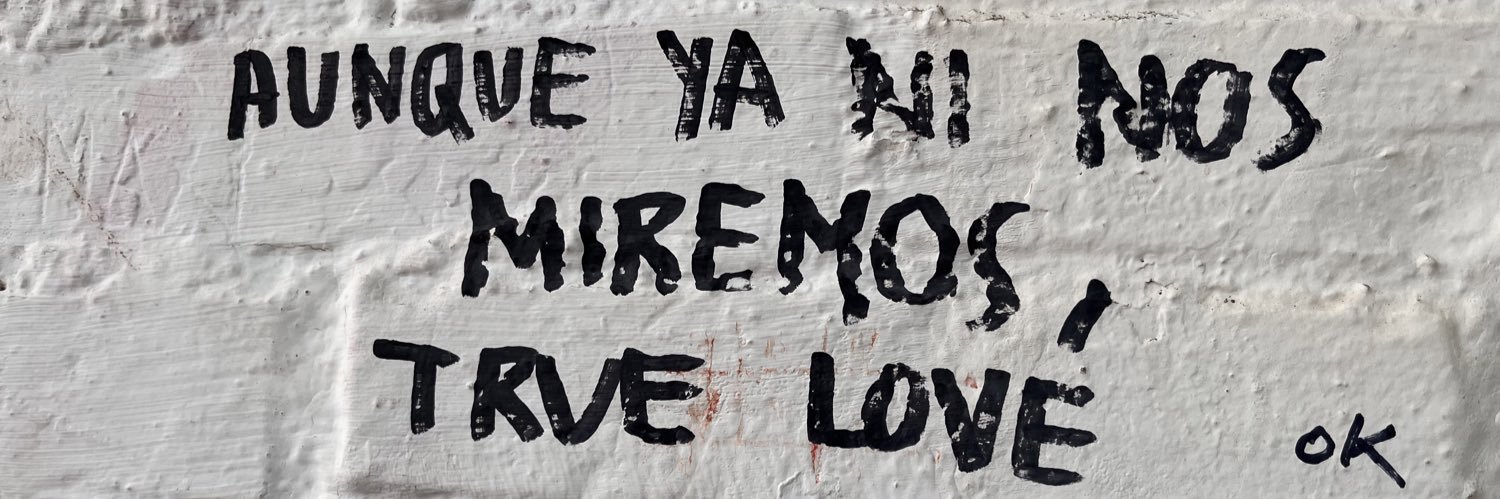 AUNQUE YA NI NOS
MIREMOS,
TRUE LOVE
OK